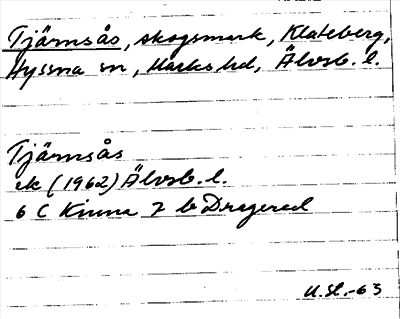 Tjärnsås, skogsmark, Klateberg,
Hyssna sn, Marks hd, Älvsb. l.
Tjärnsås
ek (1962) Älvsb. l.
6 C Kinna 7 b Dragered
U.St.-63